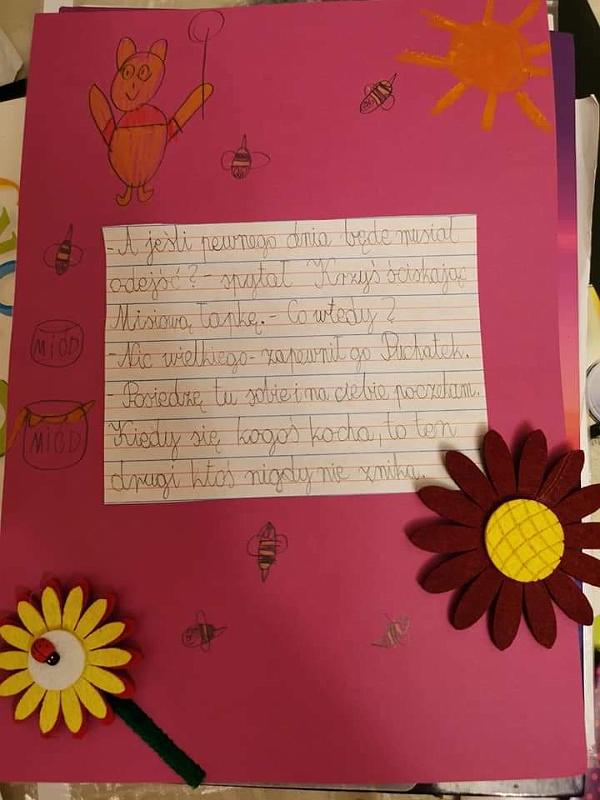 - A jeśli pewnego dnia będę musiał
odejść? - spytał Krzyś ściskając
Misiową łapkę. - Co wtedy?
- Nic wielkiego - zapewnił go Puchatek.
- Posiedzę tu sobie i na ciebie poczekam.
Kiedy się kogoś kocha, to ten
drugi ktoś nigdy nie znika.
MIÓD
MIÓD